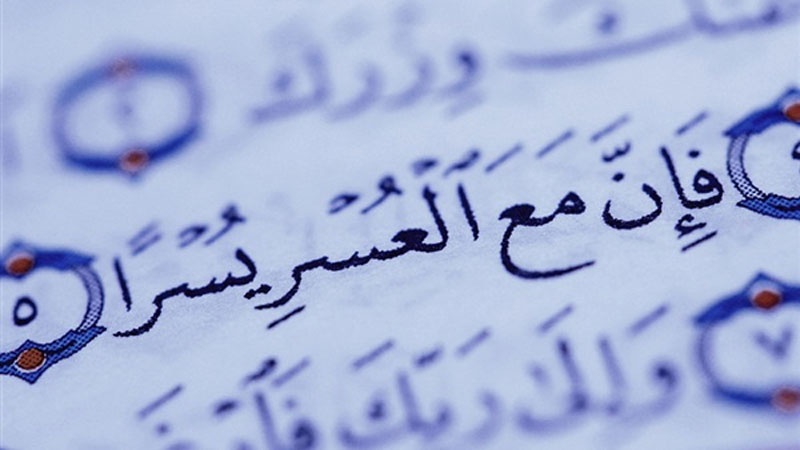 وِزْرَكَ
فَإِنَّ مَعَ ٱلْعُسْرِ يُسْرًا ٥
٧ وَإِلَىٰ رَبِّكَ